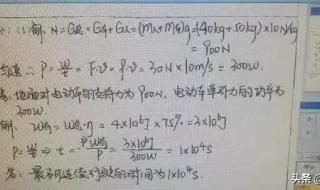 (1) 解, N=G总=G车+G人=(m人+m车)g=(40kg+50kg)×10N/kg
=900N
P=W/t=F·v=f·v=30N×10m/s=300W.
答:地面对电动车的支持力为900N.电动车牵引力的功率为
300W.
W有=W总·η=4×10⁶J×75%=3×10⁶J
P=W/t⇒t=W有/P=3×10⁶J/300W=1×10⁴s
答: 时间为1×10⁴s.
头条